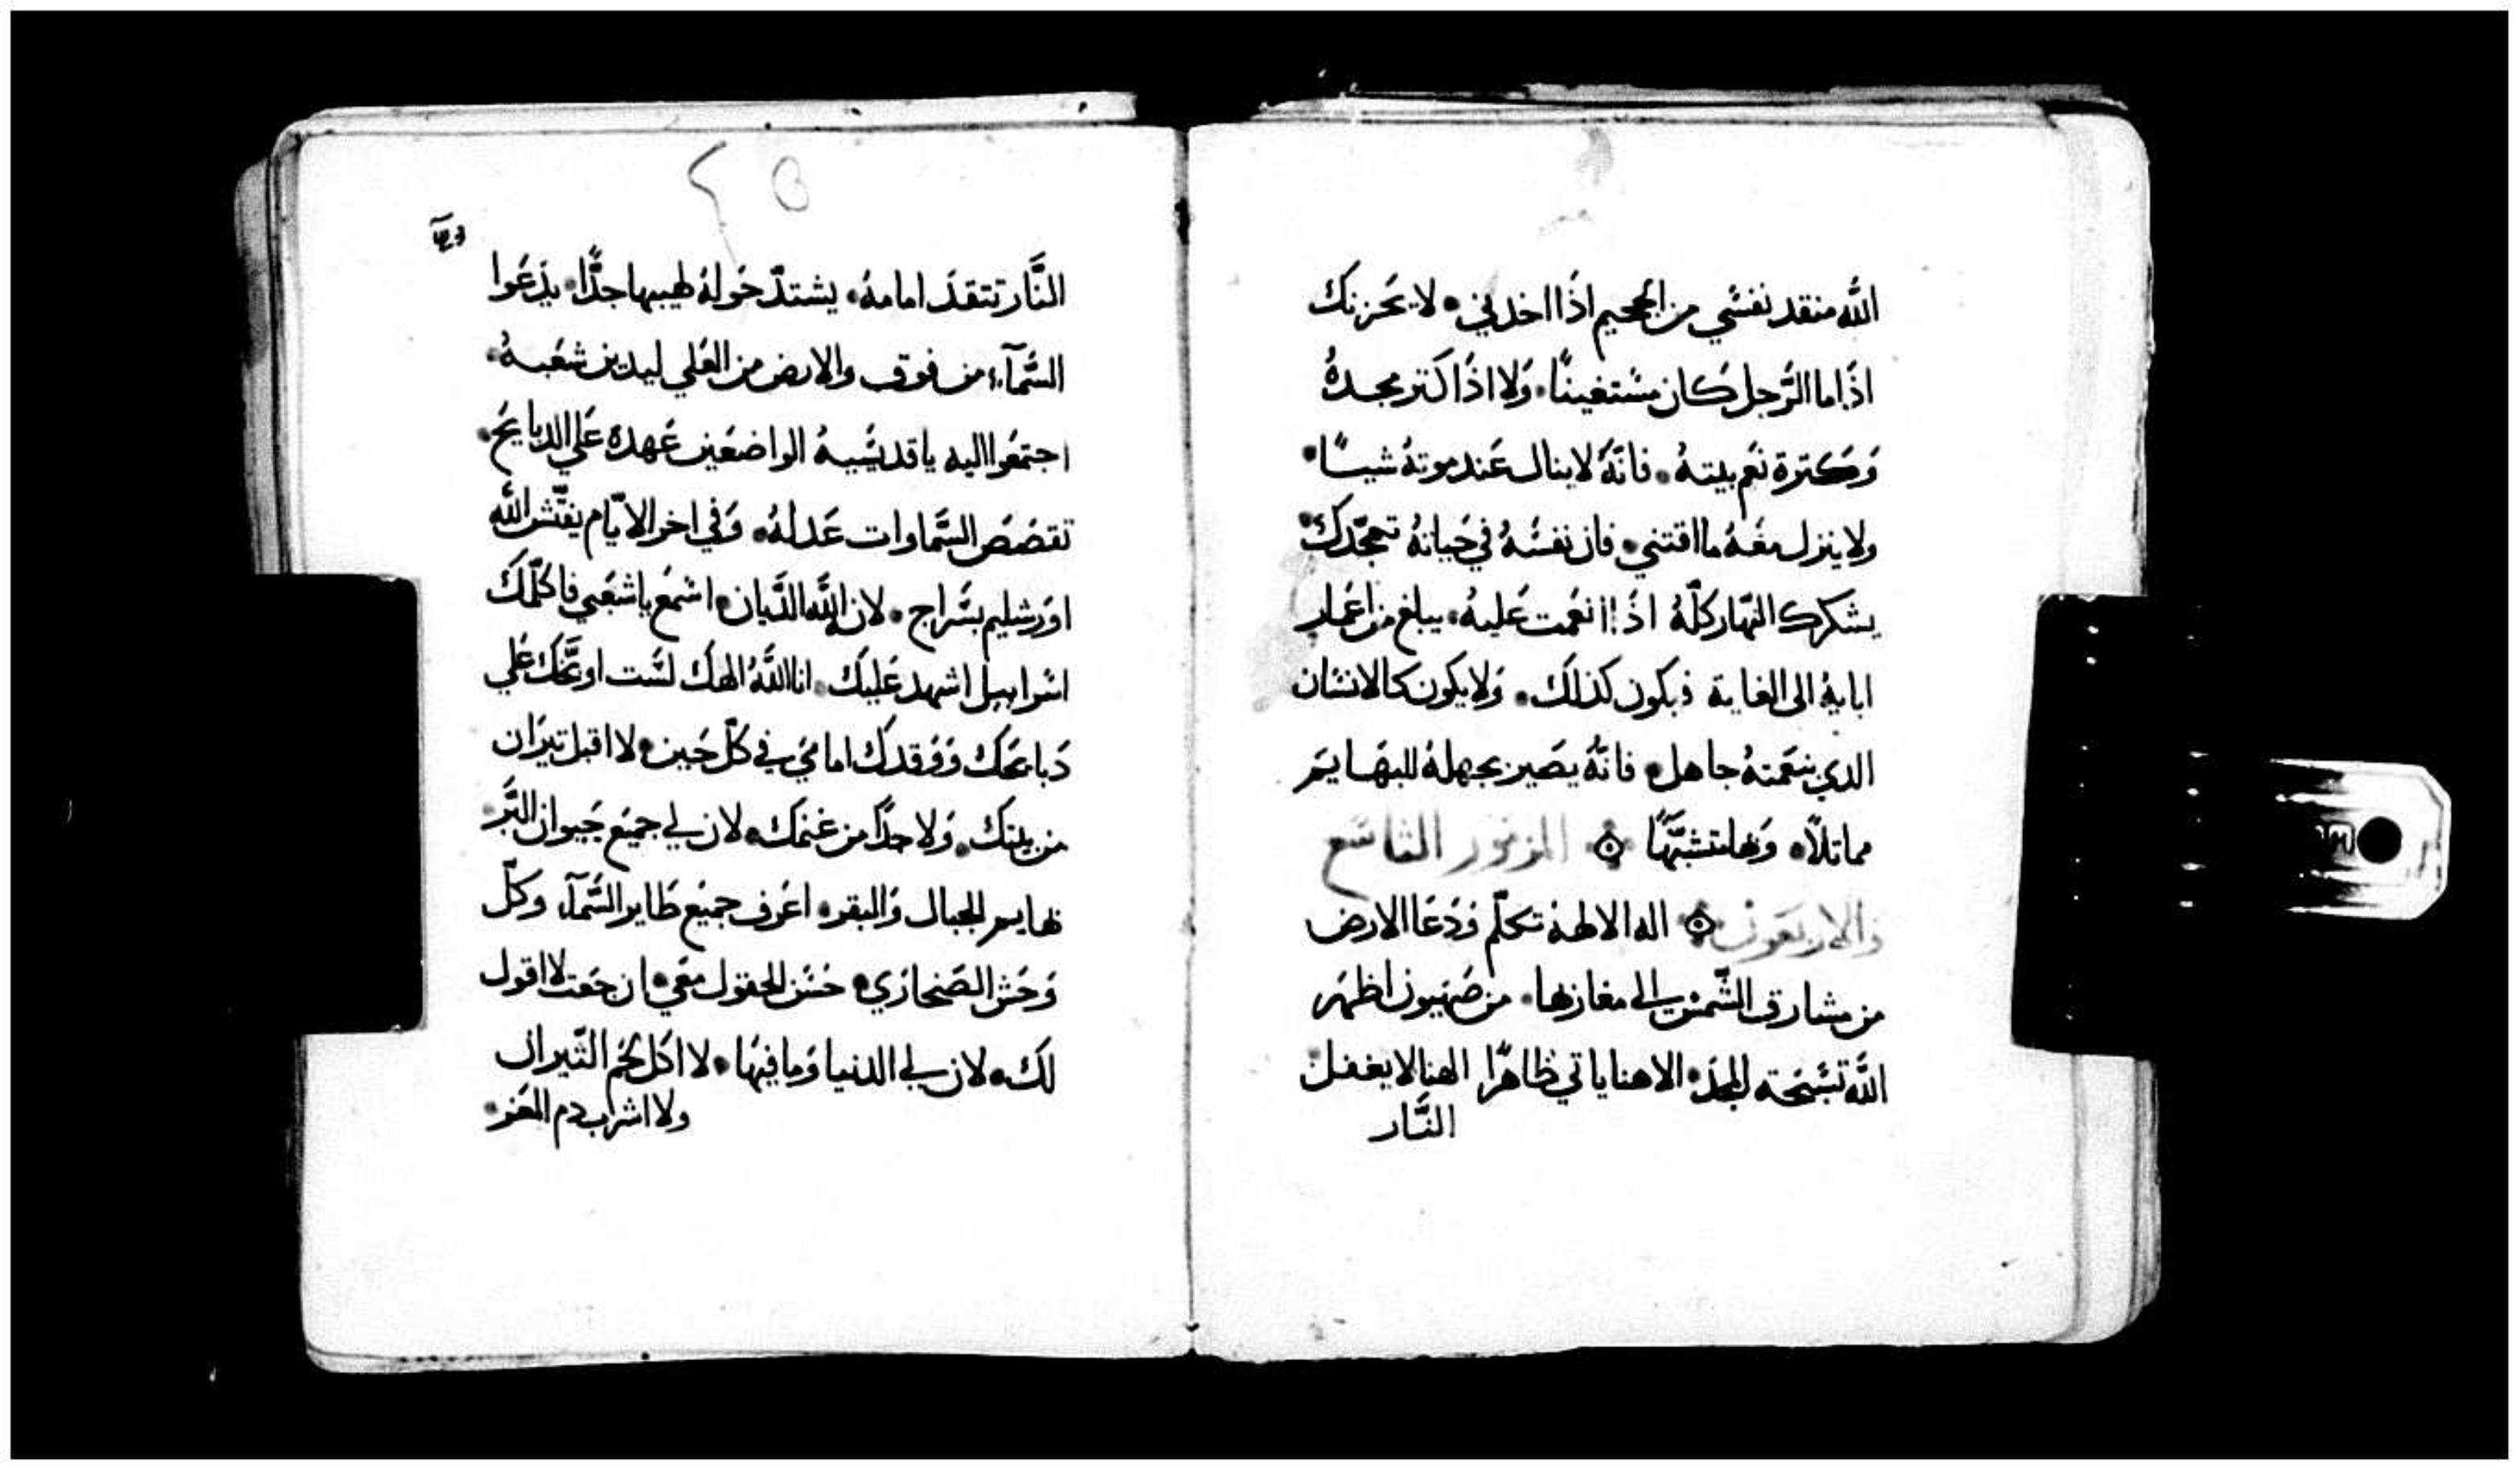 الله منقد نفسي من الجحيم اذا اخدني • لا يحزنك
اذا ما الرّجل كان مستغنيًا • ولا اذا كتر مجدهُ
وكترة نعم بيتهُ • فانّهُ لا ينال عند موتهُ شيًا •
ولا ينزل معهُ ما اقتني • فان نفسهُ في حياتهُ تمجّدك •
يشكرك النهار كلّهُ اذا انعمت عليهُ • يبلغ من اعمار
ابايهُ الى الغاية فيكون كذلك • ولا يكون كالانسان
الدي بنعمتهُ جاهل • فانّهُ يصير بجهلهُ للبهايم
مماتلاً • وبها متشبّهًا ۞ المزمور التاسع
والاربعون ۞ اله الالهة تكلّم ودعا الارض
من مشارق الشّمس الى مغاربها • من صهيون اظهر
الله تسبحته المجد • الاهنا ياتي ظاهرًا الهنا لا يغفل
النّار
25
النّار تتقد امامهُ • يشتدّ حولهُ لهيبها جدًّا • يدعوا
السّمآء من فوق والارض من العلي ليدين شعبهُ •
اجتمعوا اليه يا قديسيهُ الواضعين عهده علي الدبايح •
تقصص السّماوات عدلهُ • وفي اخر الايّام يفتّش الله
اورشليم بسّراج • لان الله الدّيان • اسمع يا شعبي فاكلّمك
اسراييل اشهد عليك • انا اللهُ الهك لست اوبّخك علي
دبايحك ووقدك امامي في كلّ حين • لا اقبل تيران
من بيتك • ولا جدًا من غنمك • لان لي جميع حيوان البّر •
بهايم الجبال والبقر • اعرف جميع طاير السّمآء وكلّ
وحش الصحاري • حسن الحقول معي • ان جعت لا اقول
لك • لان لي الدنيا وما فيها • لا اكل لحم التّيران
ولا اشرب دم المعز •